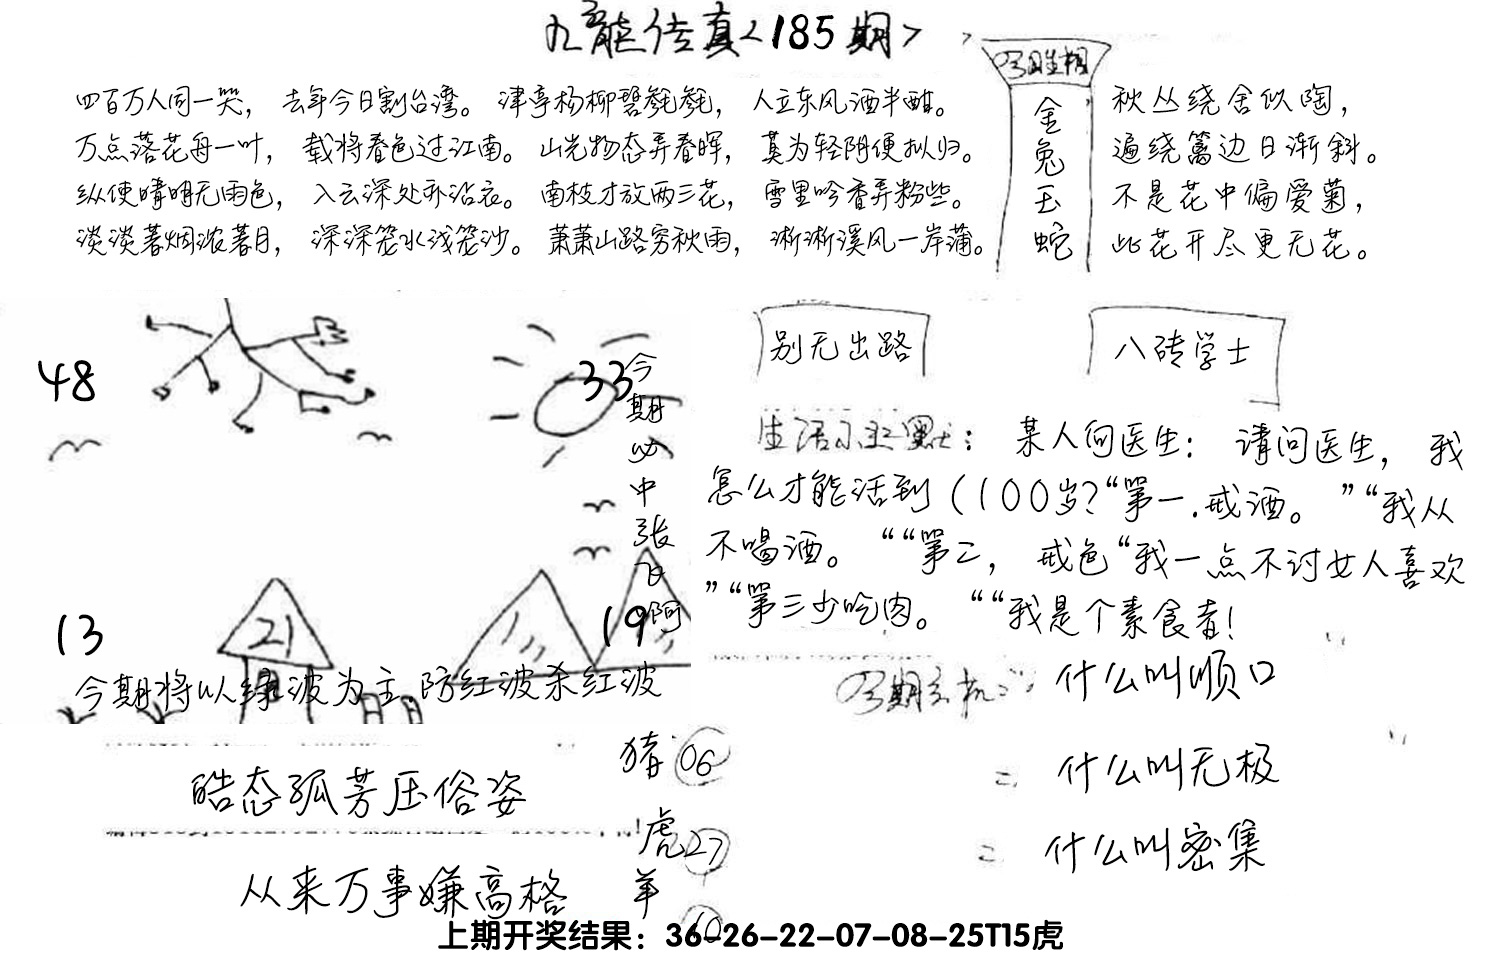 九龙传真<185期>
四百万人同一哭，去年今日割台湾。津亭杨柳碧毵毵，人立东风酒半酣。
万点落花舟一叶，载将春色过江南。山光物态弄春晖，莫为轻阴便拟归。
纵使晴明无雨色，入云深处亦沾衣。南枝才放两三花，雪里吟香弄粉些。
淡淡著烟浓著月，深深笼水浅笼沙。萧萧山路穷秋雨，淅淅溪风一岸蒲。
今日生相
金兔玉蛇
秋丛绕舍似陶，
遍绕篱边日渐斜。
不是花中偏爱菊，
此花开尽更无花。
48
33
今期必中张飞啊
13
21
19
今期将以绿波为主.防红波杀红波
别无出路
八砖学士
生活小幽默：某人问医生：请问医生，我
怎么才能活到（100岁?“第一.戒酒。”“我从
不喝酒。““第二，戒色“我一点不讨女人喜欢
”“第三少吃肉。““我是个素食者!
今期玄机: 什么叫顺口
= 什么叫无极
= 什么叫密集
皓态孤芳压俗姿
从来万事嫌高格
猪 06
虎 27
羊 10
上期开奖结果：36-26-22-07-08-25T15虎